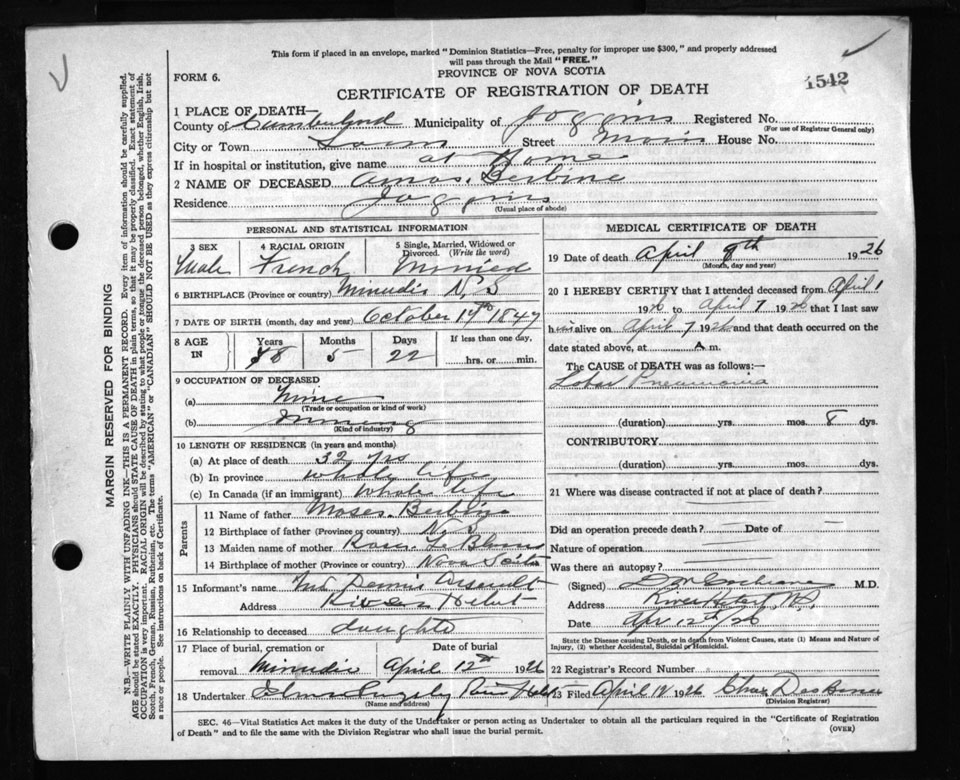 This form if placed in an envelope, marked "Dominion Statistics—Free, penalty for improper use $300," and properly addressed
will pass through the Mail "FREE."
PROVINCE OF NOVA SCOTIA
1542
FORM 6.
CERTIFICATE OF REGISTRATION OF DEATH
1 PLACE OF DEATH—
County of Cumberland Municipality of Joggins Registered No.
(For use of Registrar General only)
City or Town Street Main House No.
If in hospital or institution, give name at Home
2 NAME OF DECEASED Amos. Berbine
Residence Joggins
(Usual place of abode)
PERSONAL AND STATISTICAL INFORMATION
3 SEX 4 RACIAL ORIGIN 5 Single, Married, Widowed or Divorced. (Write the word)
Male French Married
6 BIRTHPLACE (Province or country) Minudie N.S
7 DATE OF BIRTH (month, day and year) October 17th 1847
8 AGE IN Years Months Days If less than one day,
78 5 22 hrs. or min.
9 OCCUPATION OF DECEASED
(a)
(Trade or occupation or kind of work)
(b) Mining
(Kind of industry)
10 LENGTH OF RESIDENCE (in years and months)
(a) At place of death 32 yrs
(b) In province whole life
(c) In Canada (if an immigrant) Whole life
Parents
11 Name of father Moses Berbine
12 Birthplace of father (Province or country) N.S
13 Maiden name of mother Le Blanc
14 Birthplace of mother (Province or country) Nova Scotia
15 Informant's name Mrs Dennis Arsenault
Address River Hebert
16 Relationship to deceased daughter
17 Place of burial, cremation or Date of burial
removal Minudie April 12th 1926
18 Undertaker River Hebert
(Name and address)
MEDICAL CERTIFICATE OF DEATH
19 Date of death April 9th 1926
(Month, day and year)
20 I HEREBY CERTIFY that I attended deceased from April 1
1926 to April 7 1926 that I last saw
him alive on April 7 1926 and that death occurred on
date stated above, at A m.
The CAUSE of DEATH was as follows:—
Lobar Pneumonia
(duration) yrs. mos. 8 dys.
CONTRIBUTORY
(duration) yrs. mos. dys.
21 Where was disease contracted if not at place of death?
Did an operation precede death? Date of
Nature of operation
Was there an autopsy?
(Signed) Cochrane M.D.
Address River Hebert N.S.
Date Apr 12th/26
State the Disease causing Death, or in death from Violent Causes, state (1) Means and Nature of
Injury, (2) whether Accidental, Suicidal or Homicidal.
22 Registrar's Record Number
23 Filed April 1926 Chas
(Division Registrar)
SEC. 46—Vital Statistics Act makes it the duty of the Undertaker or person acting as Undertaker to obtain all the particulars required in the "Certificate of Registration
of Death" and to file the same with the Division Registrar who shall issue the burial permit.
(OVER)
MARGIN RESERVED FOR BINDING
N.B.—WRITE PLAINLY WITH UNFADING INK—THIS IS A PERMANENT RECORD. Every item of information should be carefully supplied.
AGE should be stated EXACTLY. PHYSICIANS should STATE CAUSE OF DEATH in plain terms, so that it may be properly classified. Exact statement of
OCCUPATION is very important. RACIAL ORIGIN will be described by stating to what people or tongue the deceased person belonged, whether English, Irish,
Scotch, French, German, Russian, Ruthenian, etc. The terms "AMERICAN" or "CANADIAN" SHOULD NOT BE USED as they express citizenship but not
a race or people. See instructions on back of Certificate.